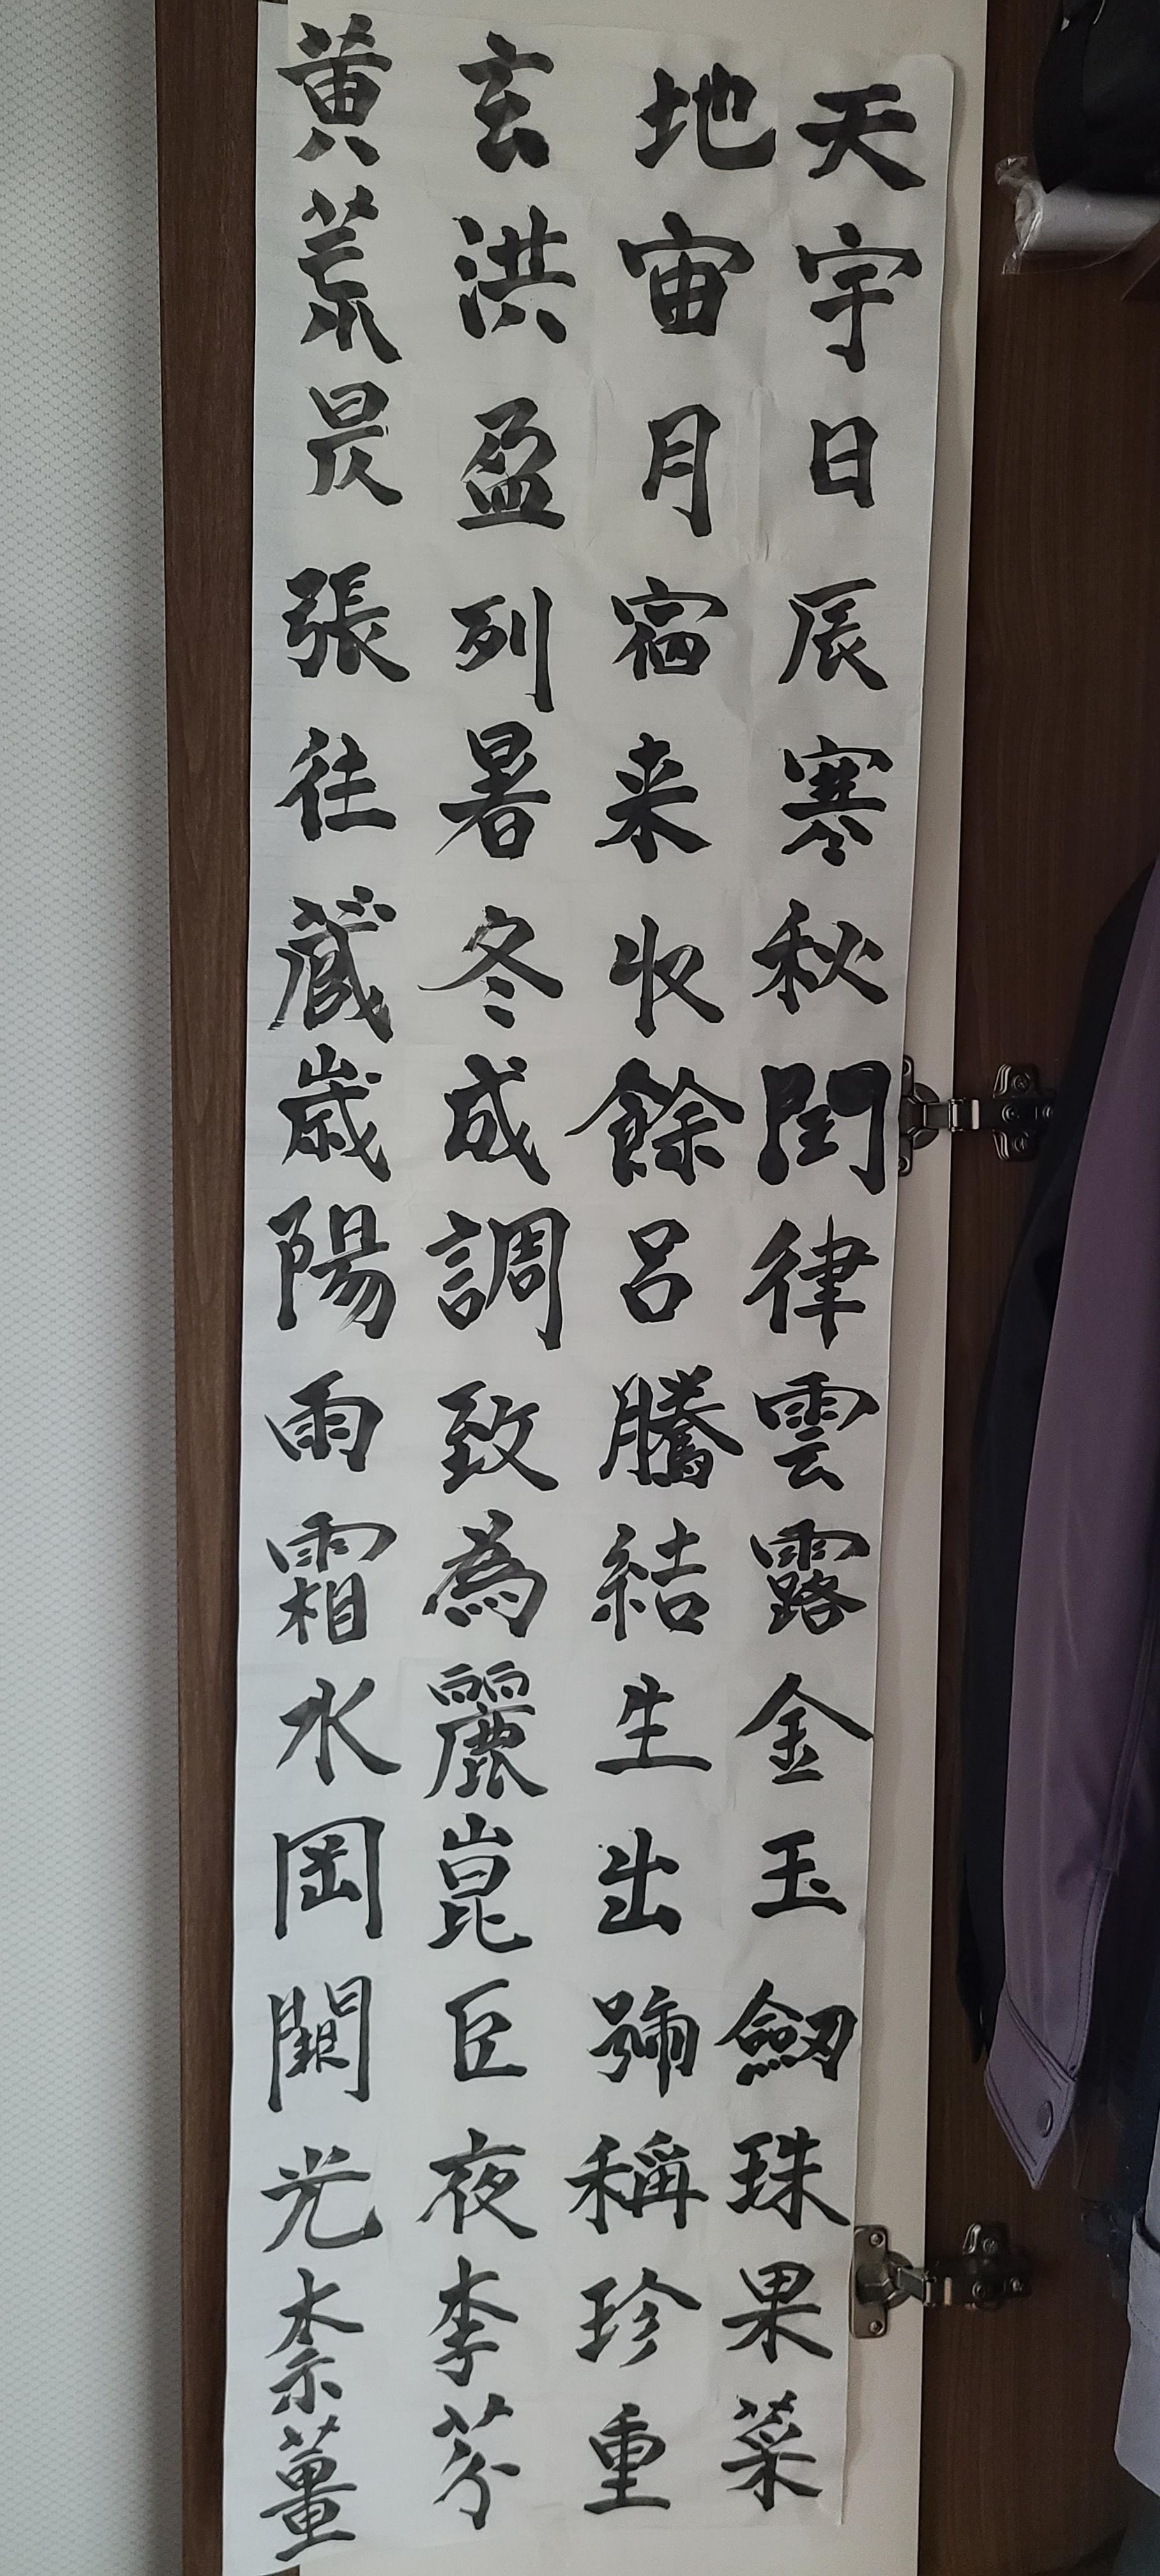 天地玄黄
宇宙洪荒
日月盈昃
辰宿列張
寒来暑往
秋収冬蔵
閏餘成歳
律呂調陽
雲騰致雨
露結為霜
金生麗水
玉出崑岡
劔號巨闕
珠稱夜光
果珍李柰
菜重芥薑